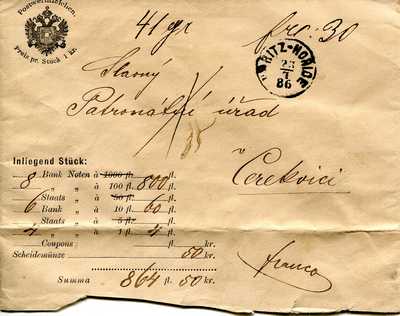 Postwerthzeichen.
Preis pr. Stück 1 kr.
41 gr
frc: 30
HOŘITZ-HOŘICE
23
7
86
Slavný
Patronátní úřad
v
Cerekvici
Inliegend Stück:
8 Bank Noten à 1000 fl. fl.
„ „ à 100 fl. 800 fl.
Staats „ à 50 fl. fl.
6 Bank „ à 10 fl. 60 fl.
Staats „ à 5 fl. fl.
4 „ „ à 1 fl. 4 fl.
Coupons fl. kr.
Scheidemünze 50 kr.
Summa 864 fl. 50 kr.
franco